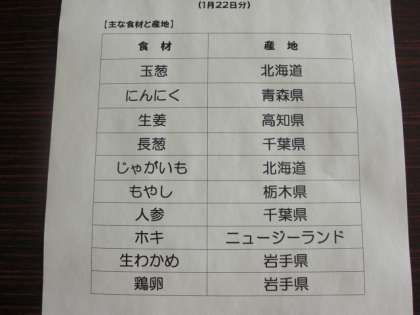 (1月22日分)
【主な食材と産地】
食 材 産 地
玉葱 北海道
にんにく 青森県
生姜 高知県
長葱 千葉県
じゃがいも 北海道
もやし 栃木県
人参 千葉県
ホキ ニュージーランド
生わかめ 岩手県
鶏卵 岩手県